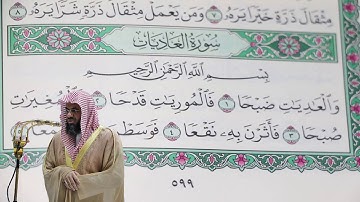 مِثْقَالَ ذَرَّةٍ خَيْرًا يَرَهُۥ ٧ وَمَن يَعْمَلْ مِثْقَالَ ذَرَّةٍ شَرًّا يَرَهُۥ ٨
سُورَةُ العَادِيَاتِ
بِسْمِ اللَّهِ الرَّحْمَٰنِ الرَّحِيمِ
وَالْعَٰدِيَٰتِ ضَبْحًا ١ فَالْمُورِيَٰتِ قَدْحًا ٢ فَالْمُغِيرَٰتِ
صُبْحًا ٣ فَأَثَرْنَ بِهِۦ نَقْعًا ٤ فَوَسَطْنَ
٥٩٩